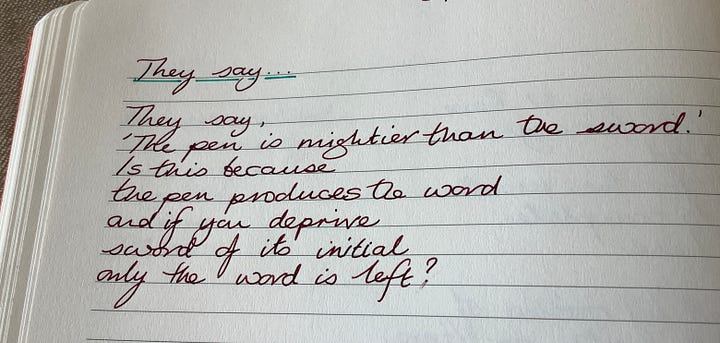 They say...
They say,
'The pen is mightier than the sword.'
Is this because
the pen produces the word
and if you deprive
sword of its initial
only the word is left?